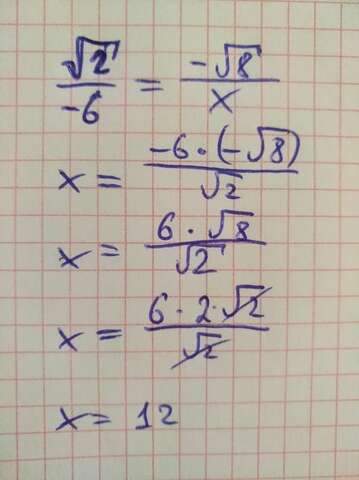 √2/-6 = -√8/x
x = -6 · (-√8)/√2
x = 6 · √8/√2
x = 6 · 2 · √2/√2
x = 12